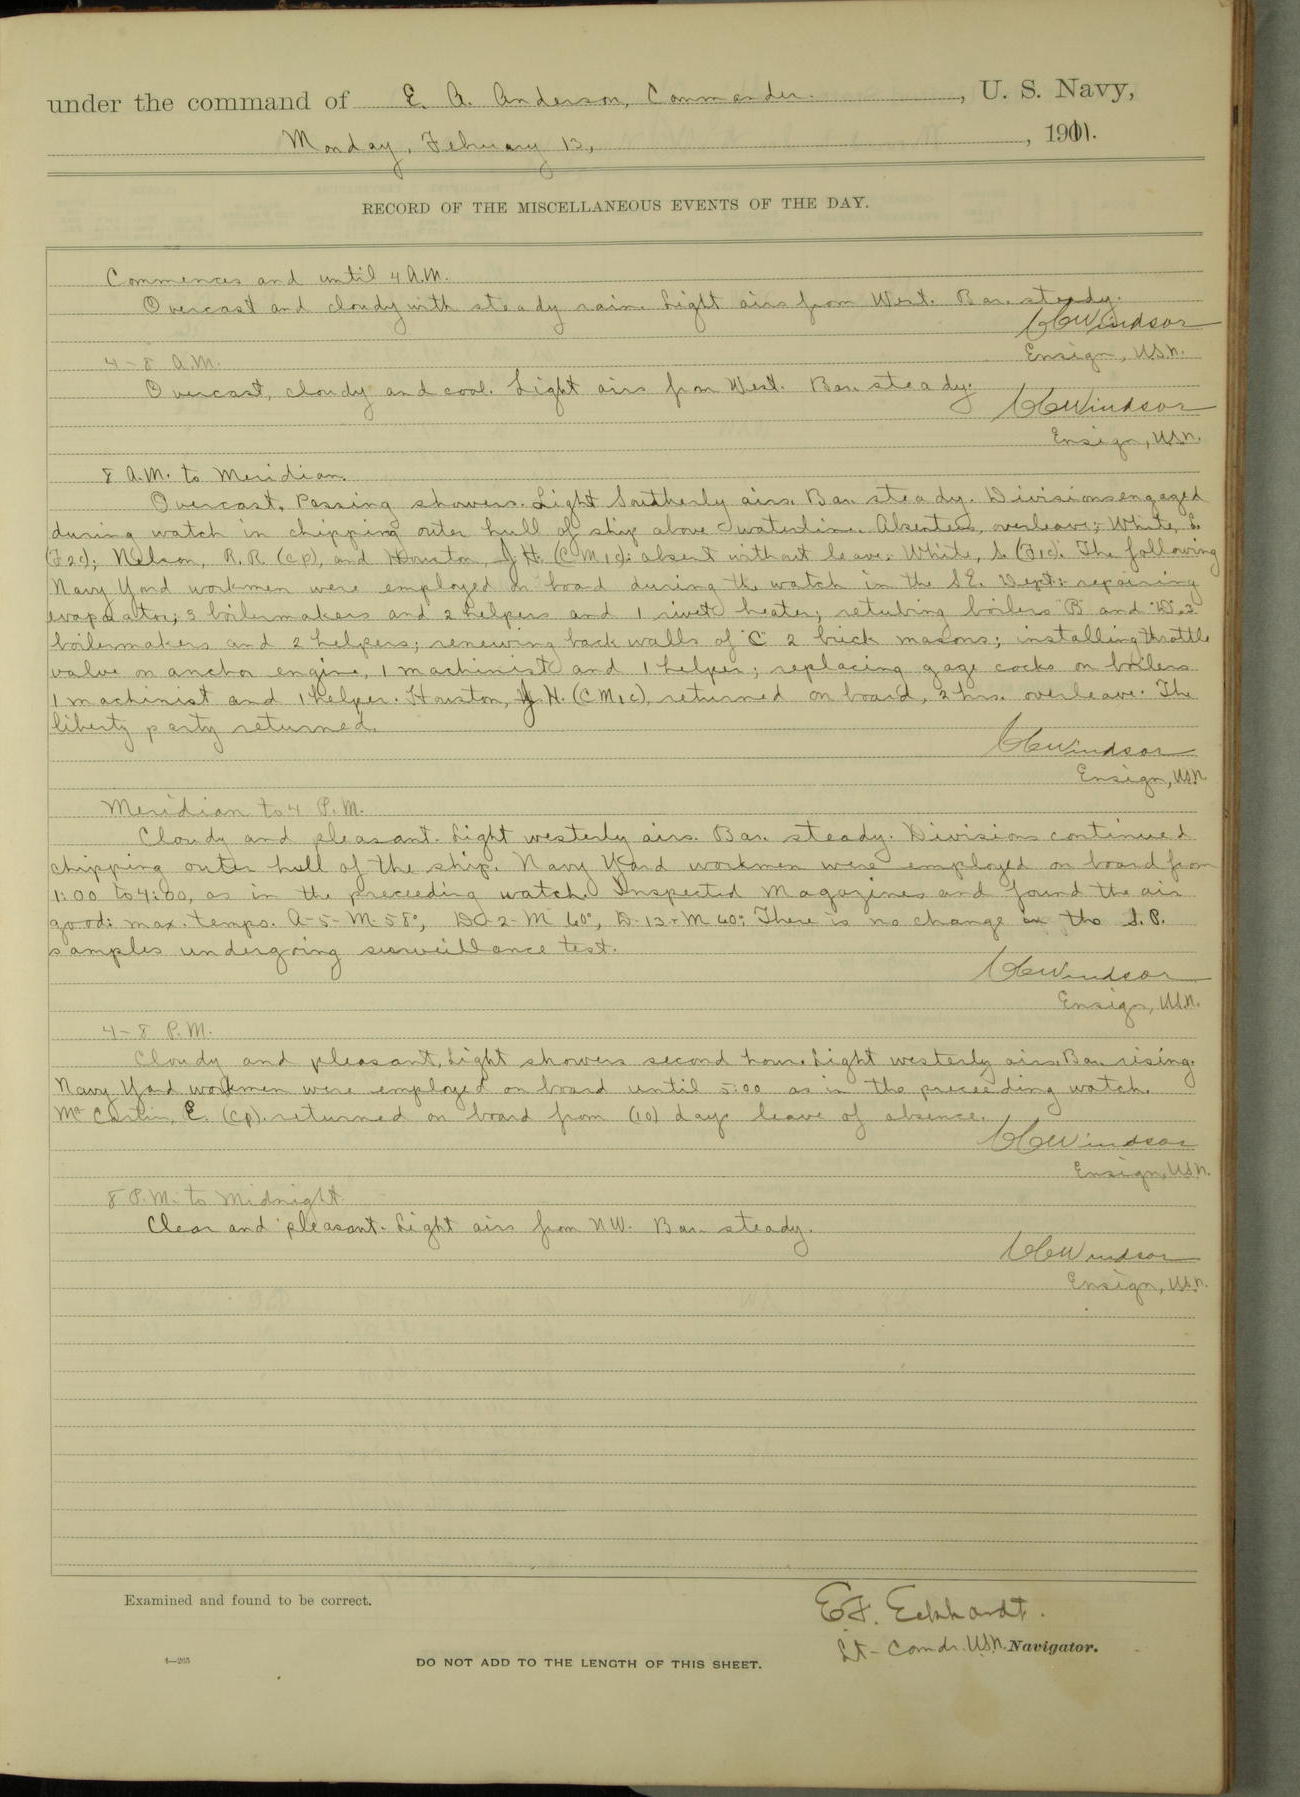 under the command of E. A. Anderson, Commander. , U. S. Navy,
Monday, February 13, , 1911.
RECORD OF THE MISCELLANEOUS EVENTS OF THE DAY.
Commences and until 4 A.M.
Overcast and cloudy with steady rain. Light airs from West. Bar. steady.
CCWindsor
Ensign, USN.
4-8 A.M.
Overcast, cloudy and cool. Light airs from West. Bar. steady.
CCWindsor
Ensign, USN.
8 A.M. to Meridian.
Overcast, Passing showers. Light Southerly airs. Bar. steady. Divisions engaged
during watch in chipping outer hull of ship above waterline. Absentees, overleave; White, L.
(F2c); Nelson, R.R. (cp), and Houston, J.H. (CM1c); absent without leave: White, L. (F1c). The following
Navy Yard workmen were employed on board during the watch in the S.E. Dept: repairing
evaporator; 3 boilermakers and 2 helpers and 1 rivet heater; retubing boilers "B" and "D", 3
boilermakers and 2 helpers; renewing back walls of "C" 2 brick masons; installing throttle
valve on anchor engine, 1 machinist and 1 helper; replacing gage cocks on boilers
1 machinist and 1 helper. Houston, J.H. (CM1c), returned on board, 2 hrs. overleave. The
liberty party returned.
CCWindsor
Ensign, USN
Meridian to 4 P.M.
Cloudy and pleasant. Light westerly airs. Bar. steady. Divisions continued
chipping outer hull of the ship. Navy Yard workmen were employed on board from
1:00 to 4:00, as in the preceeding watch. Inspected Magazines and found the air
good: max. temps. A-5-M 58°, D-2-M 60°, D-13-M 60°; There is no change in the S.P.
samples undergoing surveillance test.
CCWindsor
Ensign, USN.
4-8 P.M.
Cloudy and pleasant, Light showers second hour. Light westerly airs. Bar. rising.
Navy Yard workmen were employed on board until 5:00 as in the preceeding watch.
Mc Carlin, E. (cp). returned on board from (10) days leave of absence.
CCWindsor
Ensign, USN.
8 P.M. to Midnight
Clear and pleasant. Light airs from NW. Bar. steady.
CCWindsor
Ensign, USN.
Examined and found to be correct.
E.F. Eckhardt.
Lt-Comdr. USN. Navigator.
4-265
DO NOT ADD TO THE LENGTH OF THIS SHEET.